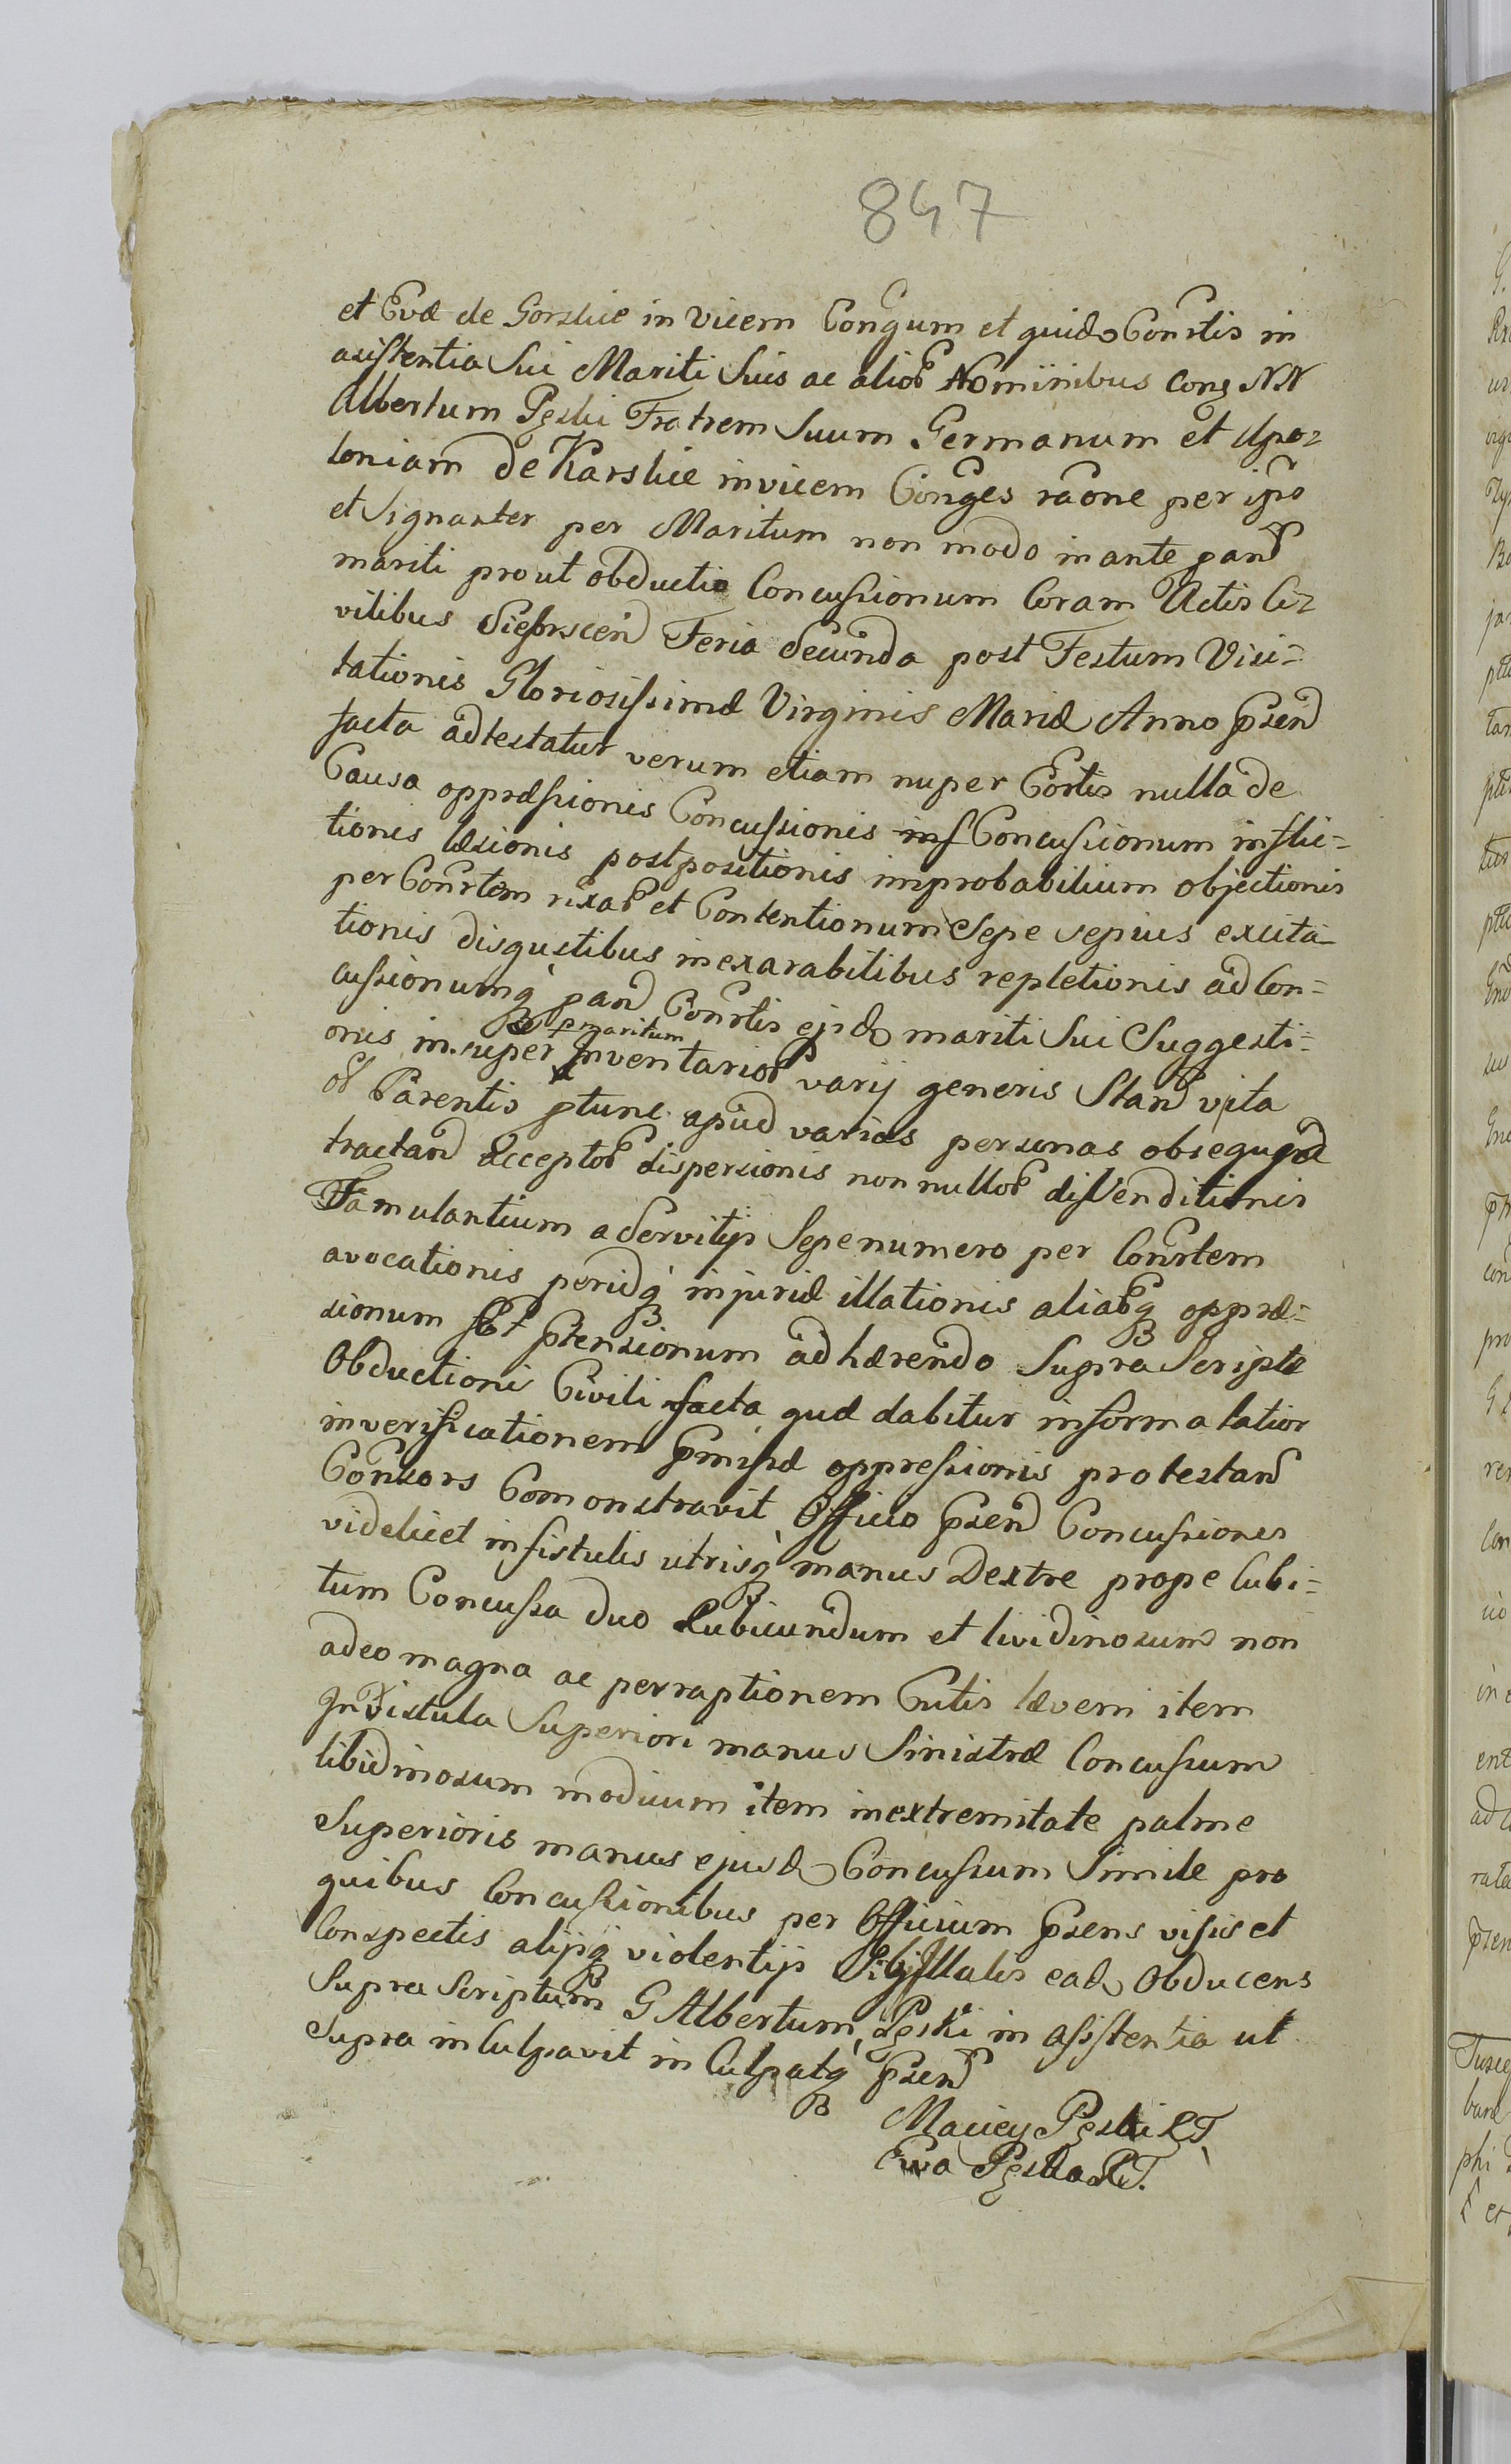 847
et Evæ de Gorskie in vicem Congum et quidō Conrtis in
asistentia Sui Mariti Suis ac alior Nominibus cong NN
Albertum Pęski Fratrem Suum Germanum et Apo=
loniam de Karskie invicem Conges raōne per ipō
et Signanter per Maritum non modo in ante pand
mariti prout obductio Concussionum Coram Actis Ci=
vilibus Siebrscen Feria Secunda post Festum Visi=
tationis Gloriosissimæ Virginis Mariæ Anno Psend
facta adtestatur verum etiam nuper Cortis nulla de
Causa oppræssionis Concussionis inf Concussionum inflic=
tionis læsionis postpositionis improbabilium objectionis
per Conrtem rixar et Contentionum Sepe sepius excita=
tionis disgustibus inexarabilibus repletionis ad Con=
cussionumq pand Conrtis ejd mariti Sui Suggesti=
onis in super p maritum Inventarior varij generis Stand vita
ol Parentis ptunc apud varias personas obsequia
tractand acceptor dispersionis non nullor disvenditionis
Famulantium a Servitijs Sepenumero per Conrtem
avocationis peridq injuriæ illationis aliarq oppræ=
sionum sbt Ptensionum adhærendo Supra Scriptæ
Obductioni Civili facta quæ dabitur informa latior
in verificationem Pmissæ oppressionis protestand
Consors Comonstravit Officio Psend Concussiones
videlicet in fistulis utrisq manus Dextre prope Cubi=
tum Concussa duo Rubicundum et lividinosum non
adeo magna ac perraptionem Cutis lævem item
In Fistula Superiori manus Sinistræ Concussum
libidinosum modicum item in extremitate palme
Superioris manus ejusd Concussum Simile pro
quibus Concussionibus per Officium Psens visis et
Conspectis alijsq violentijs Sibi Illatis ead Obducens
Supra Scriptum G Albertum Pęski in asistentia ut
Supra inculpavit in Culpatq Psend
Maciey Pęski RT
Ewa Pęska RT.